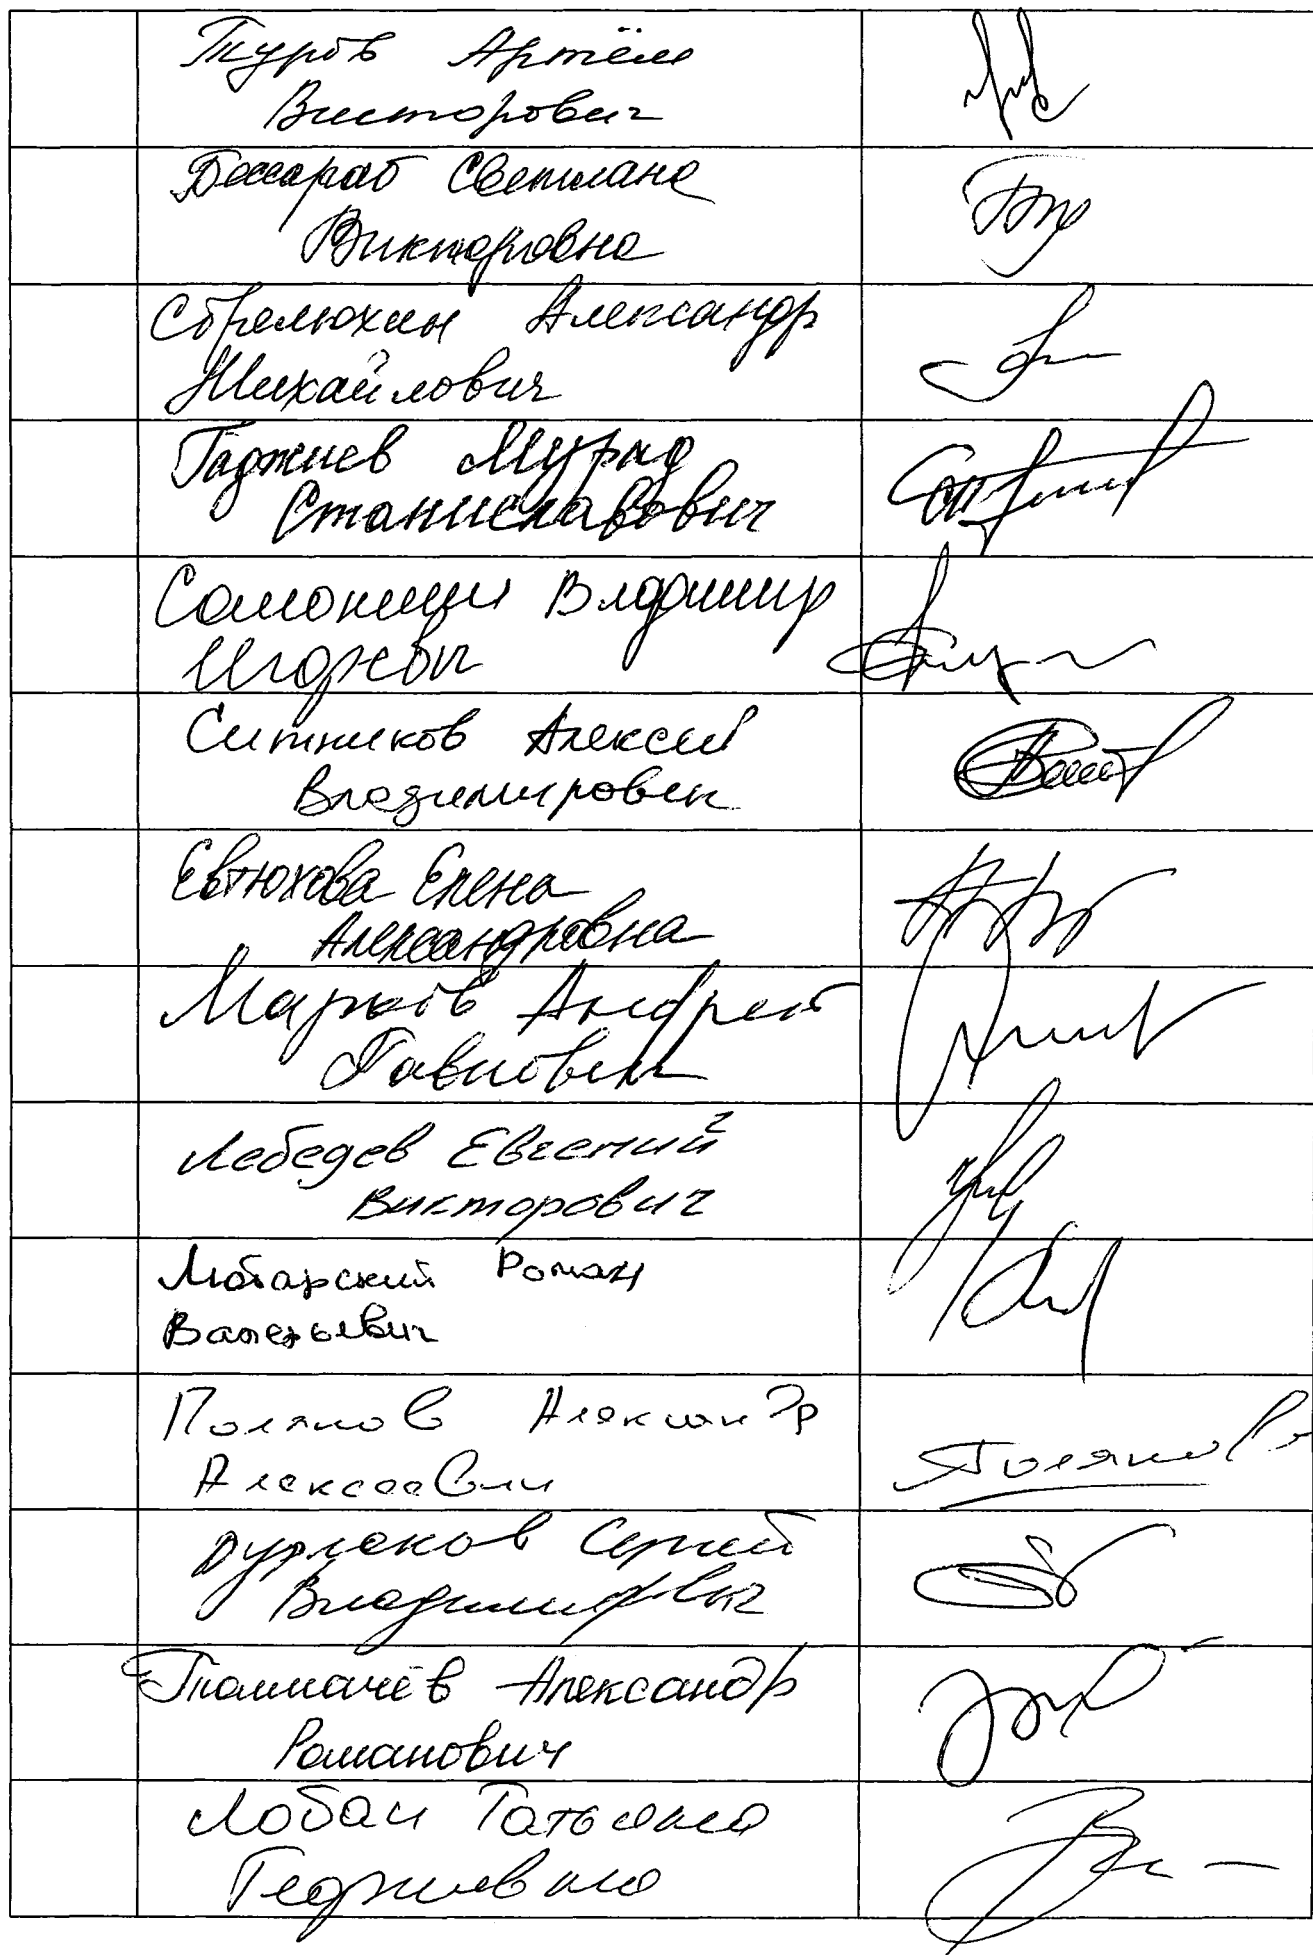 Туров Артём
Викторович
Бессараб Светлана
Викторовна
Стрелюхин Александр
Михайлович
Гаджиев Мурад
Станиславович
Самокиш Владимир
Игоревич
Ситников Алексей
Владимирович
Евтюхова Елена
Александровна
Марков Андрей
Павлович
Лебедев Евгений
Викторович
Роман
Валерьевич
Поляков Александр
Алексеевич
Бурлаков Сергей
Владимирович
Толмачёв Александр
Романович
Лобач Татьяна
Георгиевна
Поляков